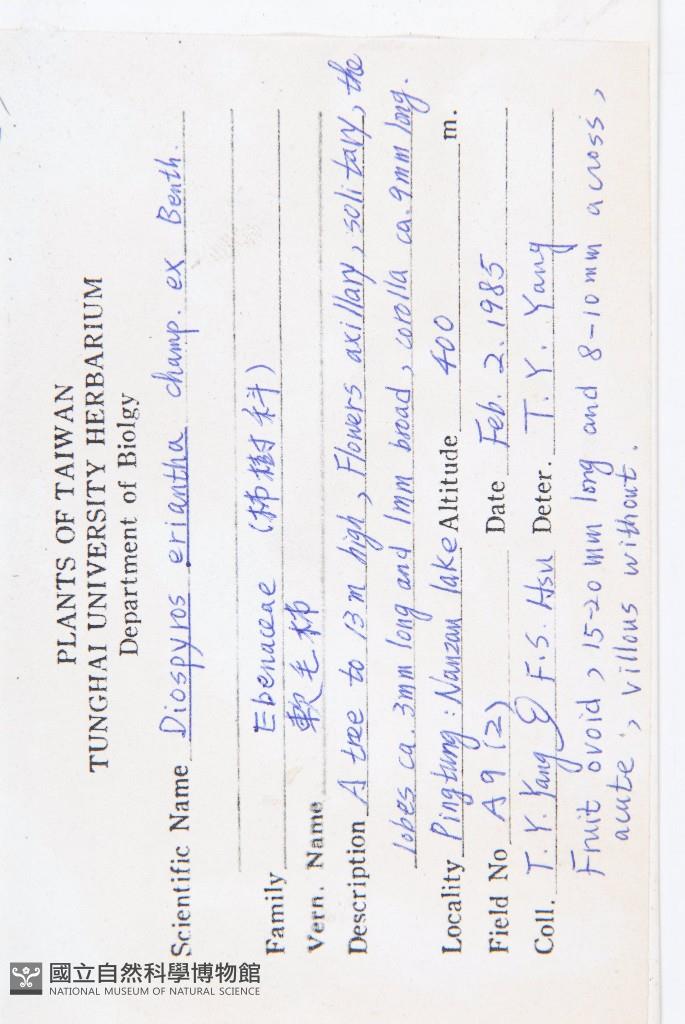 PLANTS OF TAIWAN
TUNGHAI UNIVERSITY HERBARIUM
Department of Biolgy
Scientific Name Diospyros eriantha champ. ex Benth.
Family Ebenaceae (柿樹科)
Vern. Name 軟毛柿
Description A tree to 13 m high, Flowers axillary, solitary, the
lobes ca. 3mm long and 1mm broad, corolla ca. 9mm long.
Locality Pingtung: Nanzan lake Altitude 400 m.
Field No A9 (2) Date Feb. 2. 1985
Coll. T. Y. Yang F. S. Hsu Deter. T. Y. Yang
Fruit ovoid, 15-20 mm long and 8-10 mm across,
acute, villous without.
國立自然科學博物館
NATIONAL MUSEUM OF NATURAL SCIENCE